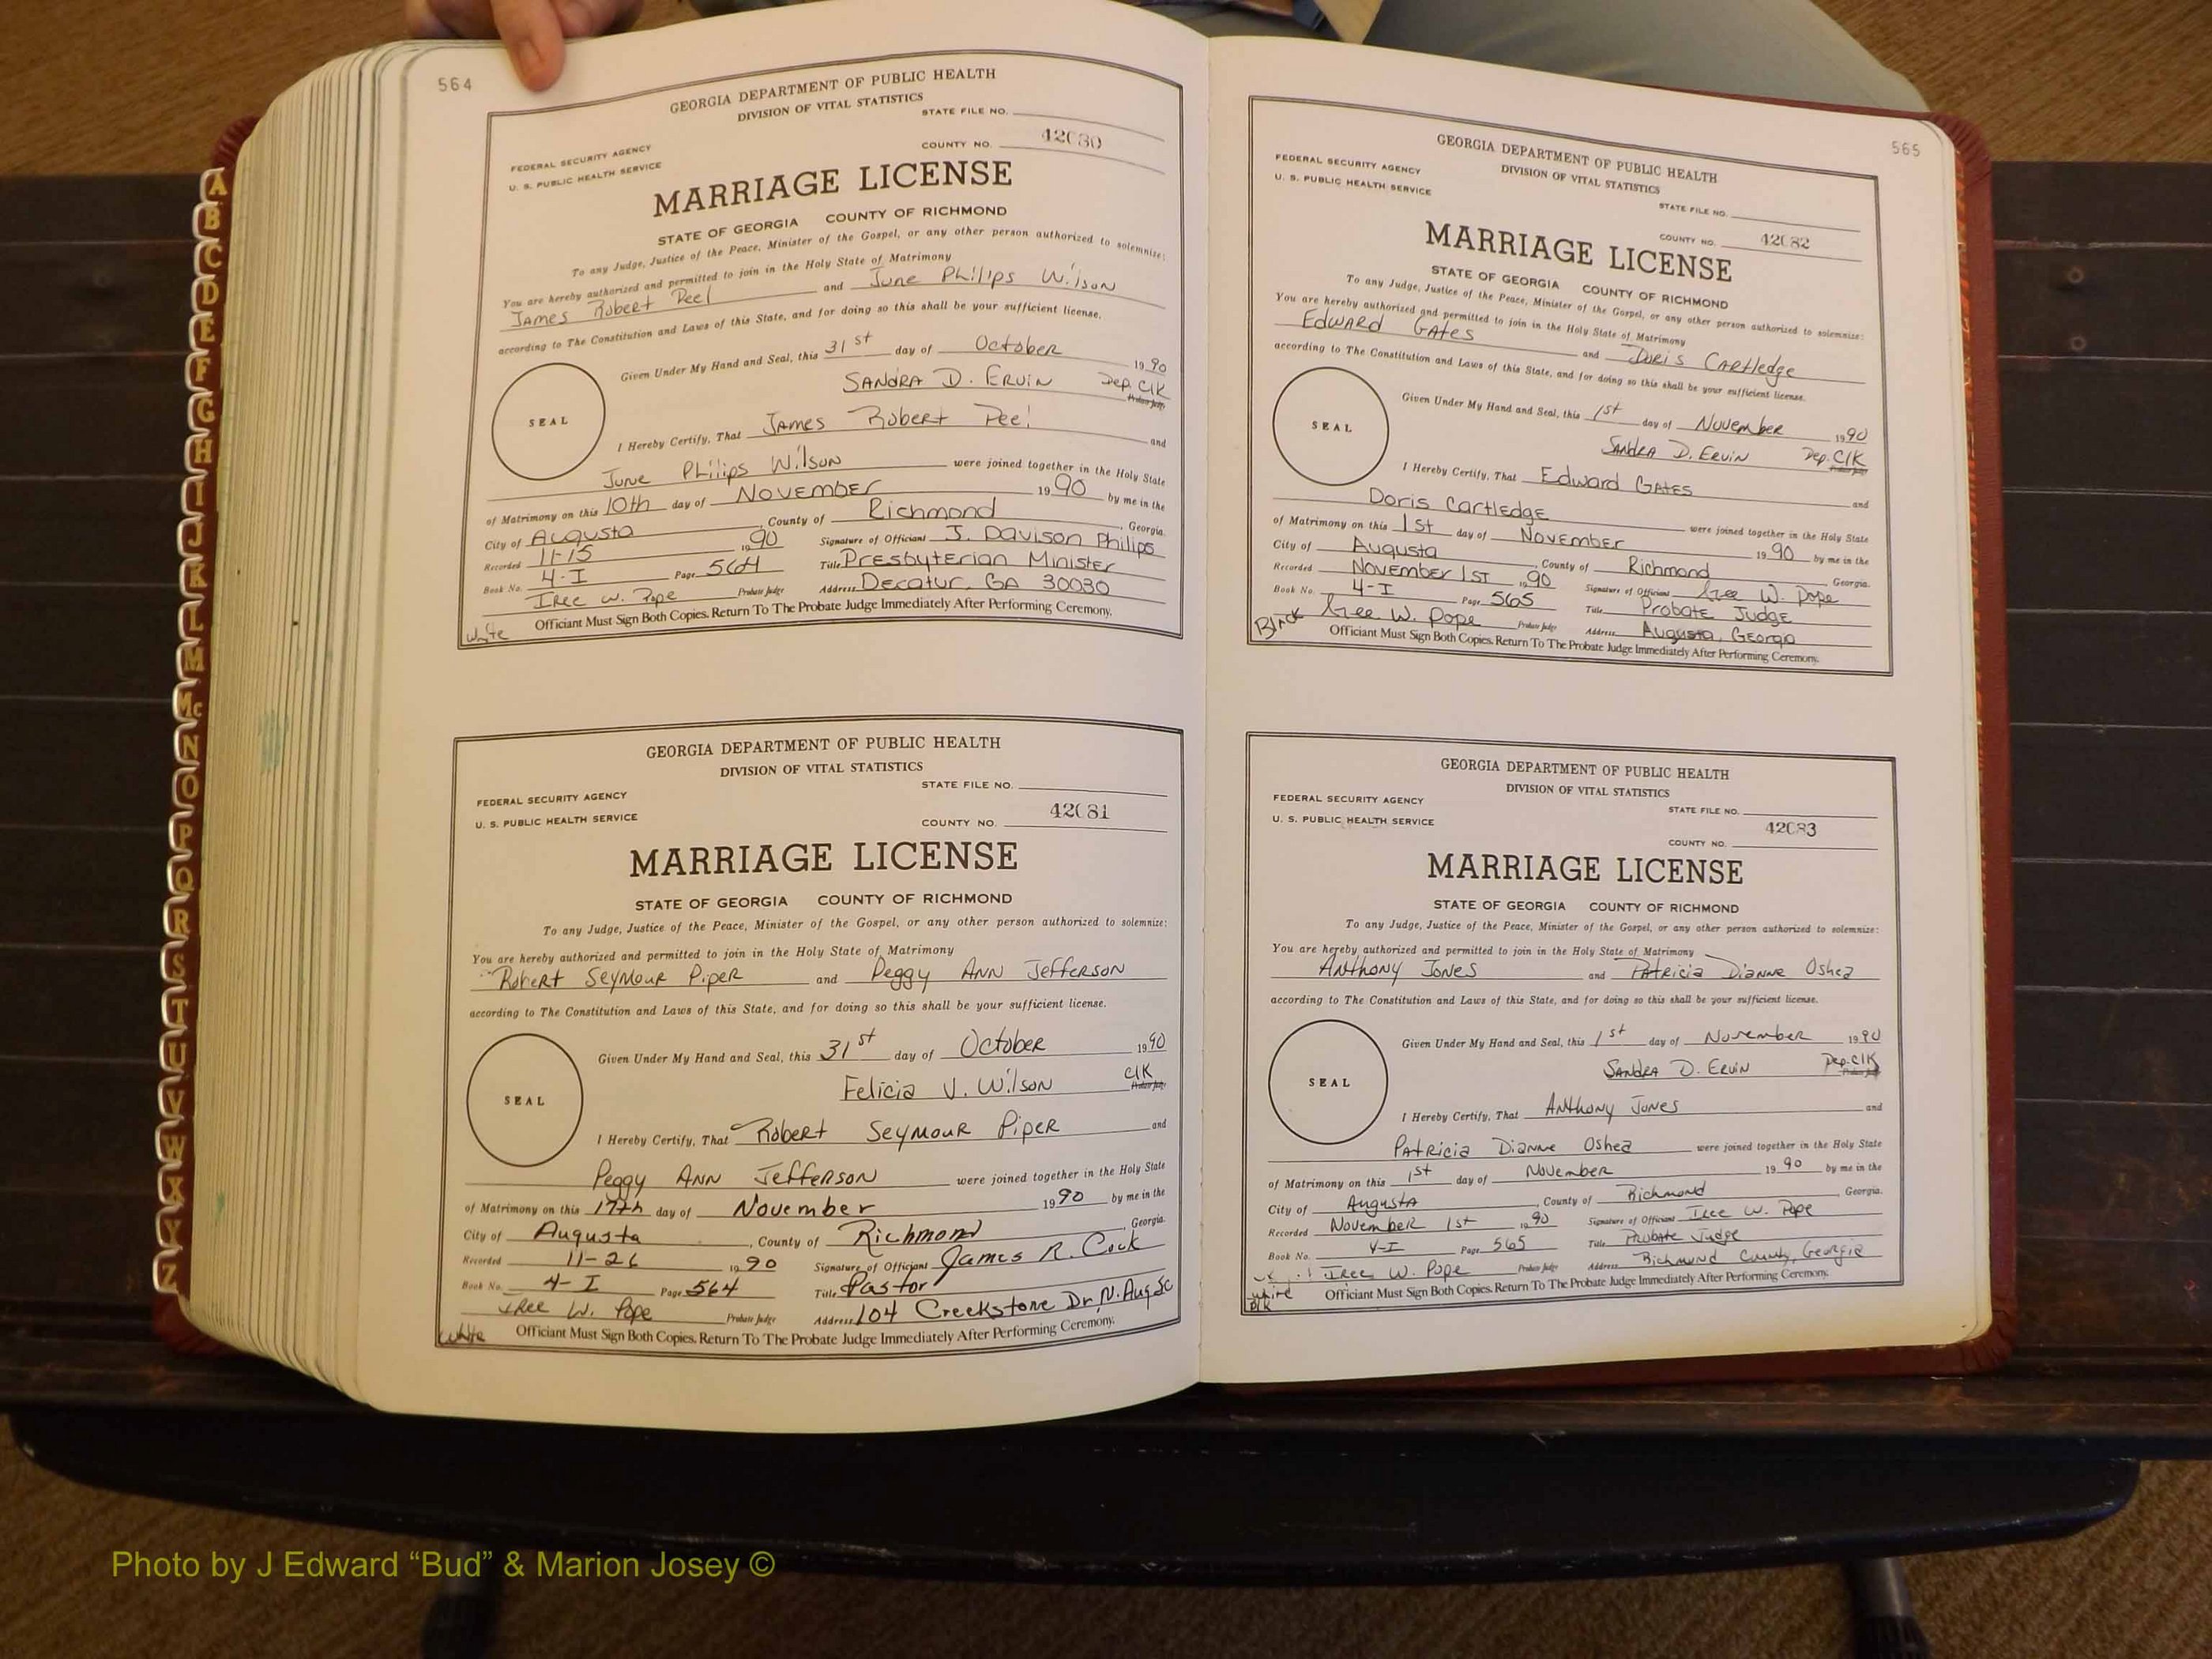 564
GEORGIA DEPARTMENT OF PUBLIC HEALTH
DIVISION OF VITAL STATISTICS
STATE FILE NO.
FEDERAL SECURITY AGENCY
COUNTY NO. 42080
U. S. PUBLIC HEALTH SERVICE
MARRIAGE LICENSE
STATE OF GEORGIA COUNTY OF RICHMOND
To any Judge, Justice of the Peace, Minister of the Gospel, or any other person authorized to solemnize:
You are hereby authorized and permitted to join in the Holy State of Matrimony
James Robert Peel and June Philips Wilson
according to The Constitution and Laws of this State, and for doing so this shall be your sufficient license.
Given Under My Hand and Seal, this 31st day of October 1990
SANDRA D. ERVIN Dep. Clk
SEAL
I Hereby Certify, That James Robert Peel and
June Philips Wilson were joined together in the Holy State
of Matrimony on this 10th day of November 1990 by me in the
City of Augusta, County of Richmond, Georgia.
Recorded 11-15 1990 Signature of Officiant J. Davison Philips
Book No. 4-I Page 564 Title Presbyterian Minister
Iree W. Pope Probate Judge Address Decatur, GA 30030
White Officiant Must Sign Both Copies. Return To The Probate Judge Immediately After Performing Ceremony.
GEORGIA DEPARTMENT OF PUBLIC HEALTH
DIVISION OF VITAL STATISTICS
STATE FILE NO.
FEDERAL SECURITY AGENCY
42081
U. S. PUBLIC HEALTH SERVICE COUNTY NO.
MARRIAGE LICENSE
STATE OF GEORGIA COUNTY OF RICHMOND
To any Judge, Justice of the Peace, Minister of the Gospel, or any other person authorized to solemnize:
You are hereby authorized and permitted to join in the Holy State of Matrimony
Robert Seymour Piper and Peggy Ann Jefferson
according to The Constitution and Laws of this State, and for doing so this shall be your sufficient license.
Given Under My Hand and Seal, this 31st day of October 1990
Felicia V. Wilson Clk
SEAL
I Hereby Certify, That Robert Seymour Piper and
Peggy Ann Jefferson were joined together in the Holy State
of Matrimony on this 17th day of November 1990 by me in the
City of Augusta, County of Richmond, Georgia.
Recorded 11-26 1990 Signature of Officiant James R. Cook
Book No. 4-I Page 564 Title Pastor
Iree W. Pope Probate Judge Address 104 Creekstone Dr, N. Aug SC
White Officiant Must Sign Both Copies. Return To The Probate Judge Immediately After Performing Ceremony.
565
GEORGIA DEPARTMENT OF PUBLIC HEALTH
DIVISION OF VITAL STATISTICS
FEDERAL SECURITY AGENCY
U. S. PUBLIC HEALTH SERVICE
STATE FILE NO.
COUNTY NO. 42082
MARRIAGE LICENSE
STATE OF GEORGIA COUNTY OF RICHMOND
To any Judge, Justice of the Peace, Minister of the Gospel, or any other person authorized to solemnize:
You are hereby authorized and permitted to join in the Holy State of Matrimony
Edward Gates and Doris Cartledge
according to The Constitution and Laws of this State, and for doing so this shall be your sufficient license.
Given Under My Hand and Seal, this 1st day of November 1990
Sandra D. Ervin Dep. Clk
SEAL
I Hereby Certify, That Edward Gates and
Doris Cartledge were joined together in the Holy State
of Matrimony on this 1st day of November 1990 by me in the
City of Augusta, County of Richmond, Georgia.
Recorded November 1st 1990 Signature of Officiant Iree W. Pope
Book No. 4-I Page 565 Title Probate Judge
Iree W. Pope Probate Judge Address Augusta, Georgia
Officiant Must Sign Both Copies. Return To The Probate Judge Immediately After Performing Ceremony.
GEORGIA DEPARTMENT OF PUBLIC HEALTH
DIVISION OF VITAL STATISTICS
FEDERAL SECURITY AGENCY
STATE FILE NO.
U. S. PUBLIC HEALTH SERVICE
42083
COUNTY NO.
MARRIAGE LICENSE
STATE OF GEORGIA COUNTY OF RICHMOND
To any Judge, Justice of the Peace, Minister of the Gospel, or any other person authorized to solemnize:
You are hereby authorized and permitted to join in the Holy State of Matrimony
Anthony Jones and Patricia Dianne Oshea
according to The Constitution and Laws of this State, and for doing so this shall be your sufficient license.
Given Under My Hand and Seal, this 1st day of November 1990
Sandra D. Ervin Dep. Clk
SEAL
I Hereby Certify, That Anthony Jones and
Patricia Dianne Oshea were joined together in the Holy State
of Matrimony on this 1st day of November 1990 by me in the
City of Augusta, County of Richmond, Georgia.
Recorded November 1st 1990 Signature of Officiant Iree W. Pope
Book No. V-I Page 565 Title Probate Judge
Iree W. Pope Probate Judge Address Richmond County, Georgia
Officiant Must Sign Both Copies. Return To The Probate Judge Immediately After Performing Ceremony.
A
B
C
D
E
F
G
H
I
J
K
L
M
Mc
N
O
P
Q
R
S
T
U
V
W
X
Y
Z
Photo by J Edward “Bud” & Marion Josey ©